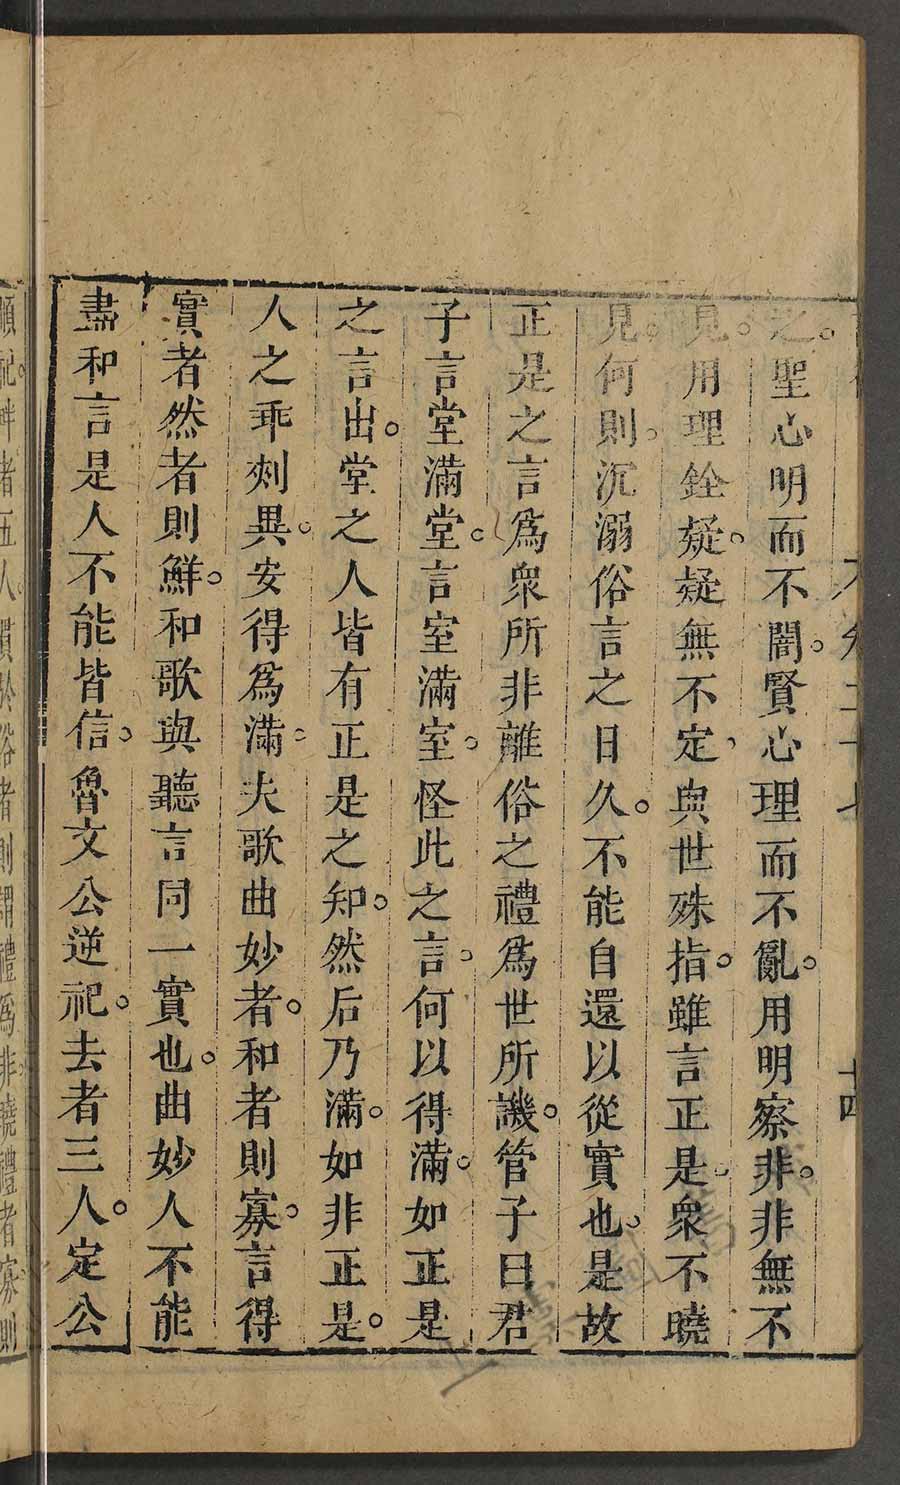 之。聖心明而不闇。賢心理而不亂。用明察非。非無不
見。用理銓疑。疑無不定。與世殊指。雖言正是。衆不曉
見。何則。沉溺俗言之日久。不能自還以從實也。是故
正是之言爲衆所非離俗之禮爲世所譏。管子曰君
子言堂滿堂。言室滿室。怪此之言。何以得滿。如正是
之言出。堂之人皆有正是之知。然后乃滿。如非正是。
人之乖剌異。安得爲滿。夫歌曲妙者。和者則寡。言得
實者然者則鮮。和歌與聽言同一實也。曲妙人不能
盡和言是人不能皆信。魯文公逆祀。去者三人。定公
順祀。畔者五人。貫於俗者則謂禮爲非。曉禮者寡則
十四